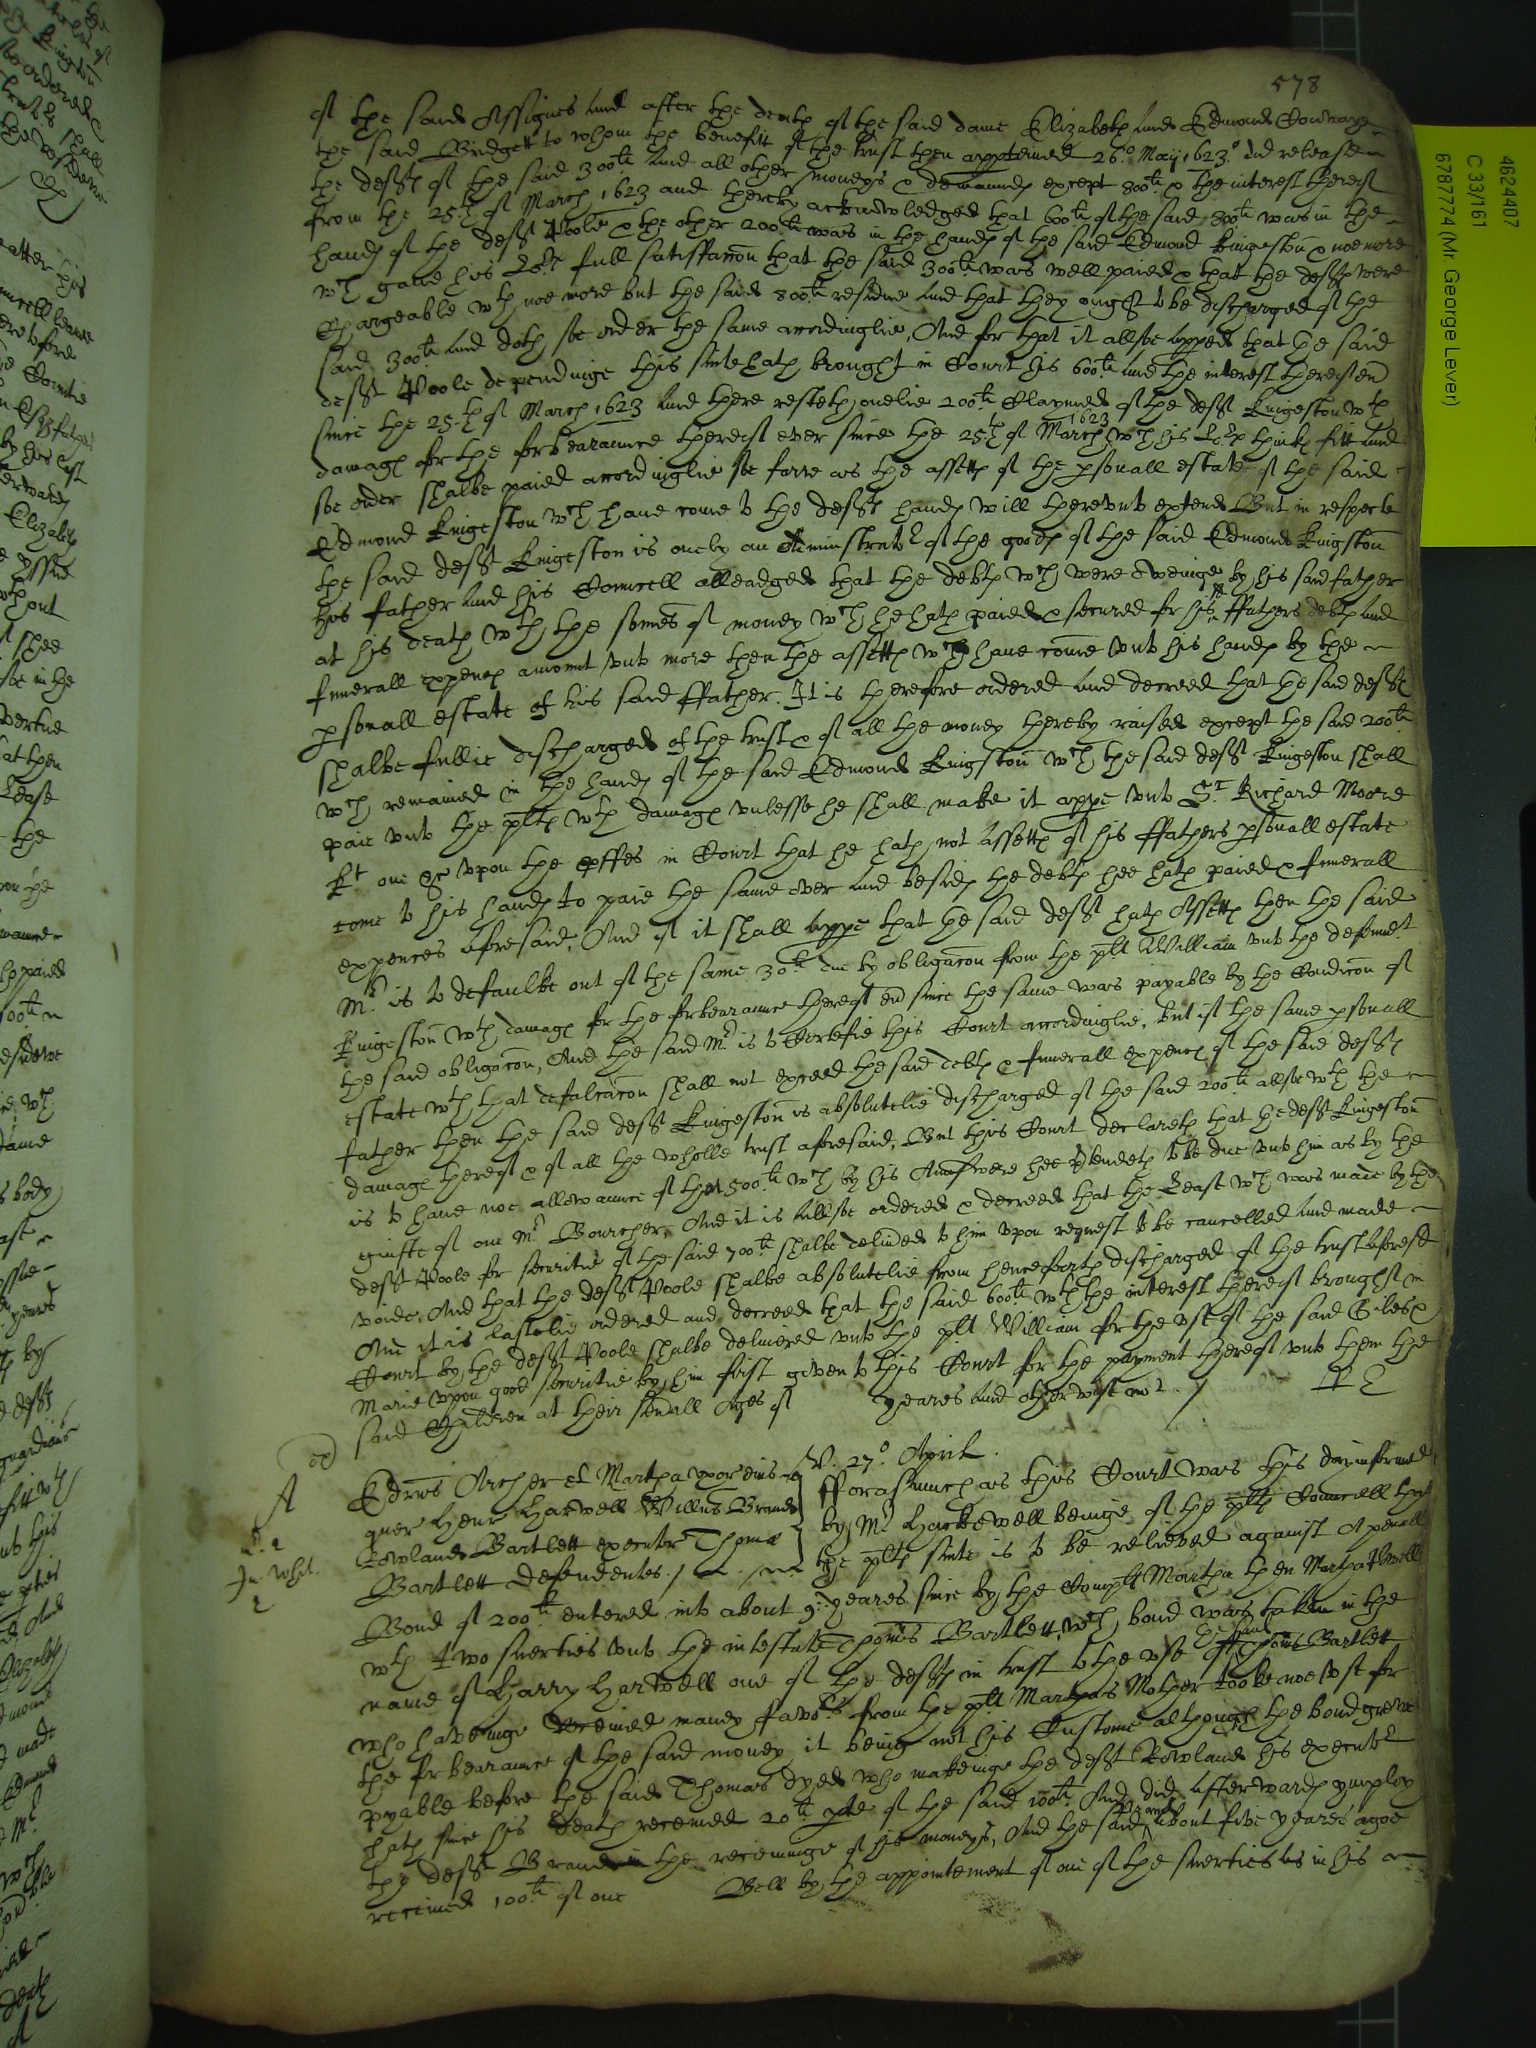 578
of the said Assignes and after the death of the said dame Elizabeth and Edmond Conwaye
the said Bridgett to whom the benefitt of the trust then apperteined 26.o Maij 1623.o did release
the defts of the said 300li and all other moneys & demaunds except 800li & the interest thereof
from the 25.th of March 1623 and thereby acknowledged that 600li of the said 800li was in the
hands of the deft Poole & the other 200li was in the hands of the said Edmond Kingeston & noe more
wch gave his Lopp full satisfaccon that the said 300li was well paied & that the defts were
Chargeable wth noe more but the said 800li residue And that they ought to be discharged of the
said 300li And doth soe order the same accordinglie, And for that it allsoe appeed that the said
deft Poole dependinge this suite hath brought in Court his 600li and the interest thereof en
since the 25.th of March 1623 And there resteth onelie 200li Claymed of the deft Kingeston wth
damages for the forbearaunce thereof ever since the 25th of March 1623 wch his Lopp thinks fitt and
soe order shalbe paied accordinglie soe farre as the assetts of the psonall estate of the said
Edmond Kingeston wch have come to the defts hands will therevnto extend But in respecte
the said deft Kingeston is onely an Administrator of the goods of the said Edmond Kingston
his father And his Councell alleadged that the debts wch were oweinge by his said father
at his death wth the somes of money wch he hath paied & secured for his sd ffathers debts and
funerall expences amount vnto more then the assetts wch have come vnto his hands by the
psonall estate of his said ffather. It is therefore ordered and decreed that the said defts
shalbe fullie discharged of the trust & of all the money thereby raised except the said 200li
wch remained in the hands of the said Edmond Kingston wch the said deft Kingeston shall
paie vnto the plts wth damages vnlesse he shall make it appe vnto Sr Richard Moore
Kt one &c vpon the pffes in Court that he hath not Assetts of his ffathers psonall estate
come to his hands to paie the same over and besides the debts hee hath paied & funerall
expences aforesaid, And if it shall appe that the said deft hath Assetts then the said
Mr is to defaulke out of the same 30li due by obligacon from the plt William vnto the defendt
Kingeston wth damages for the forbearance thereof en since the same was payable by the Condicon of
the said obligacon, And the said Mr is to Certefie this Court accordinglie, but if the same psonall
estate wth that defalcacon shall not exceed the said debts & funerall expences of the said defts
father then the said deft Kingeston is absolutelie discharged of the said 200li allsoe wth the
damages thereof & of all the wholle trust aforesaid, But this Court declareth that the deft Kingeston
is to have noe allowaunce of that 500li wch by his Answere hee ptendeth to be due vnto him as by the
guifte of one Mr Bourcher, And it is allsoe ordered & decreed that the Lease wch was made by the
deft Poole for securitie of the said 700li shalbe delived to him vpon request to be cancelled and made
voide, And that the deft Poole shalbe absolutelie from henceforth discharged of the trust aforesd
And it is lastelie ordered and decreed that the said 600li wth the interest thereof brought in
Court by the deft Poole shalbe delivered vnto the plt William for the vse of the said Giles &
Marie vpon good securitie by him first given to this Court for the payment thereof vnto them the
said Children at their severall Ages of yeares and otherwise not. /
A
Edrus Archer et Martha vxor eius
quer Henr Harwell Willus Brand
Rowland Bartlett executr Thome
Bartlett defendentes. /
V. 27.o April.
fforasmuch as this Court was this day informed
by Mr Hackewell beinge of the plts Councell that
the plts suite is to be relieved against A penall
Bond of 200li entered into about 9. yeares since by the Complt Martha then Martha
wth two suerties vnto the intestate Thomas Bartlett, wch bond was taken in the
name of Harry Harwell one of the defts in trust to the vse of the said Thoms Bartlett
who haveinge received maney favors from the plt Marthas Mother tooke noe vse for
the forbearance of the said money it being not his Custome although the bond grewe
payable before the said Thomas dyed who makeinge the deft Rowland his executor
hath since his death received 20li pte of the said 100li And did afterwards ymploy
the deft Brand in the receivinge of his moneys, And the said Brand about five yeares agoe
received 100li of one Bell by the appointement of one of the suerties as in his